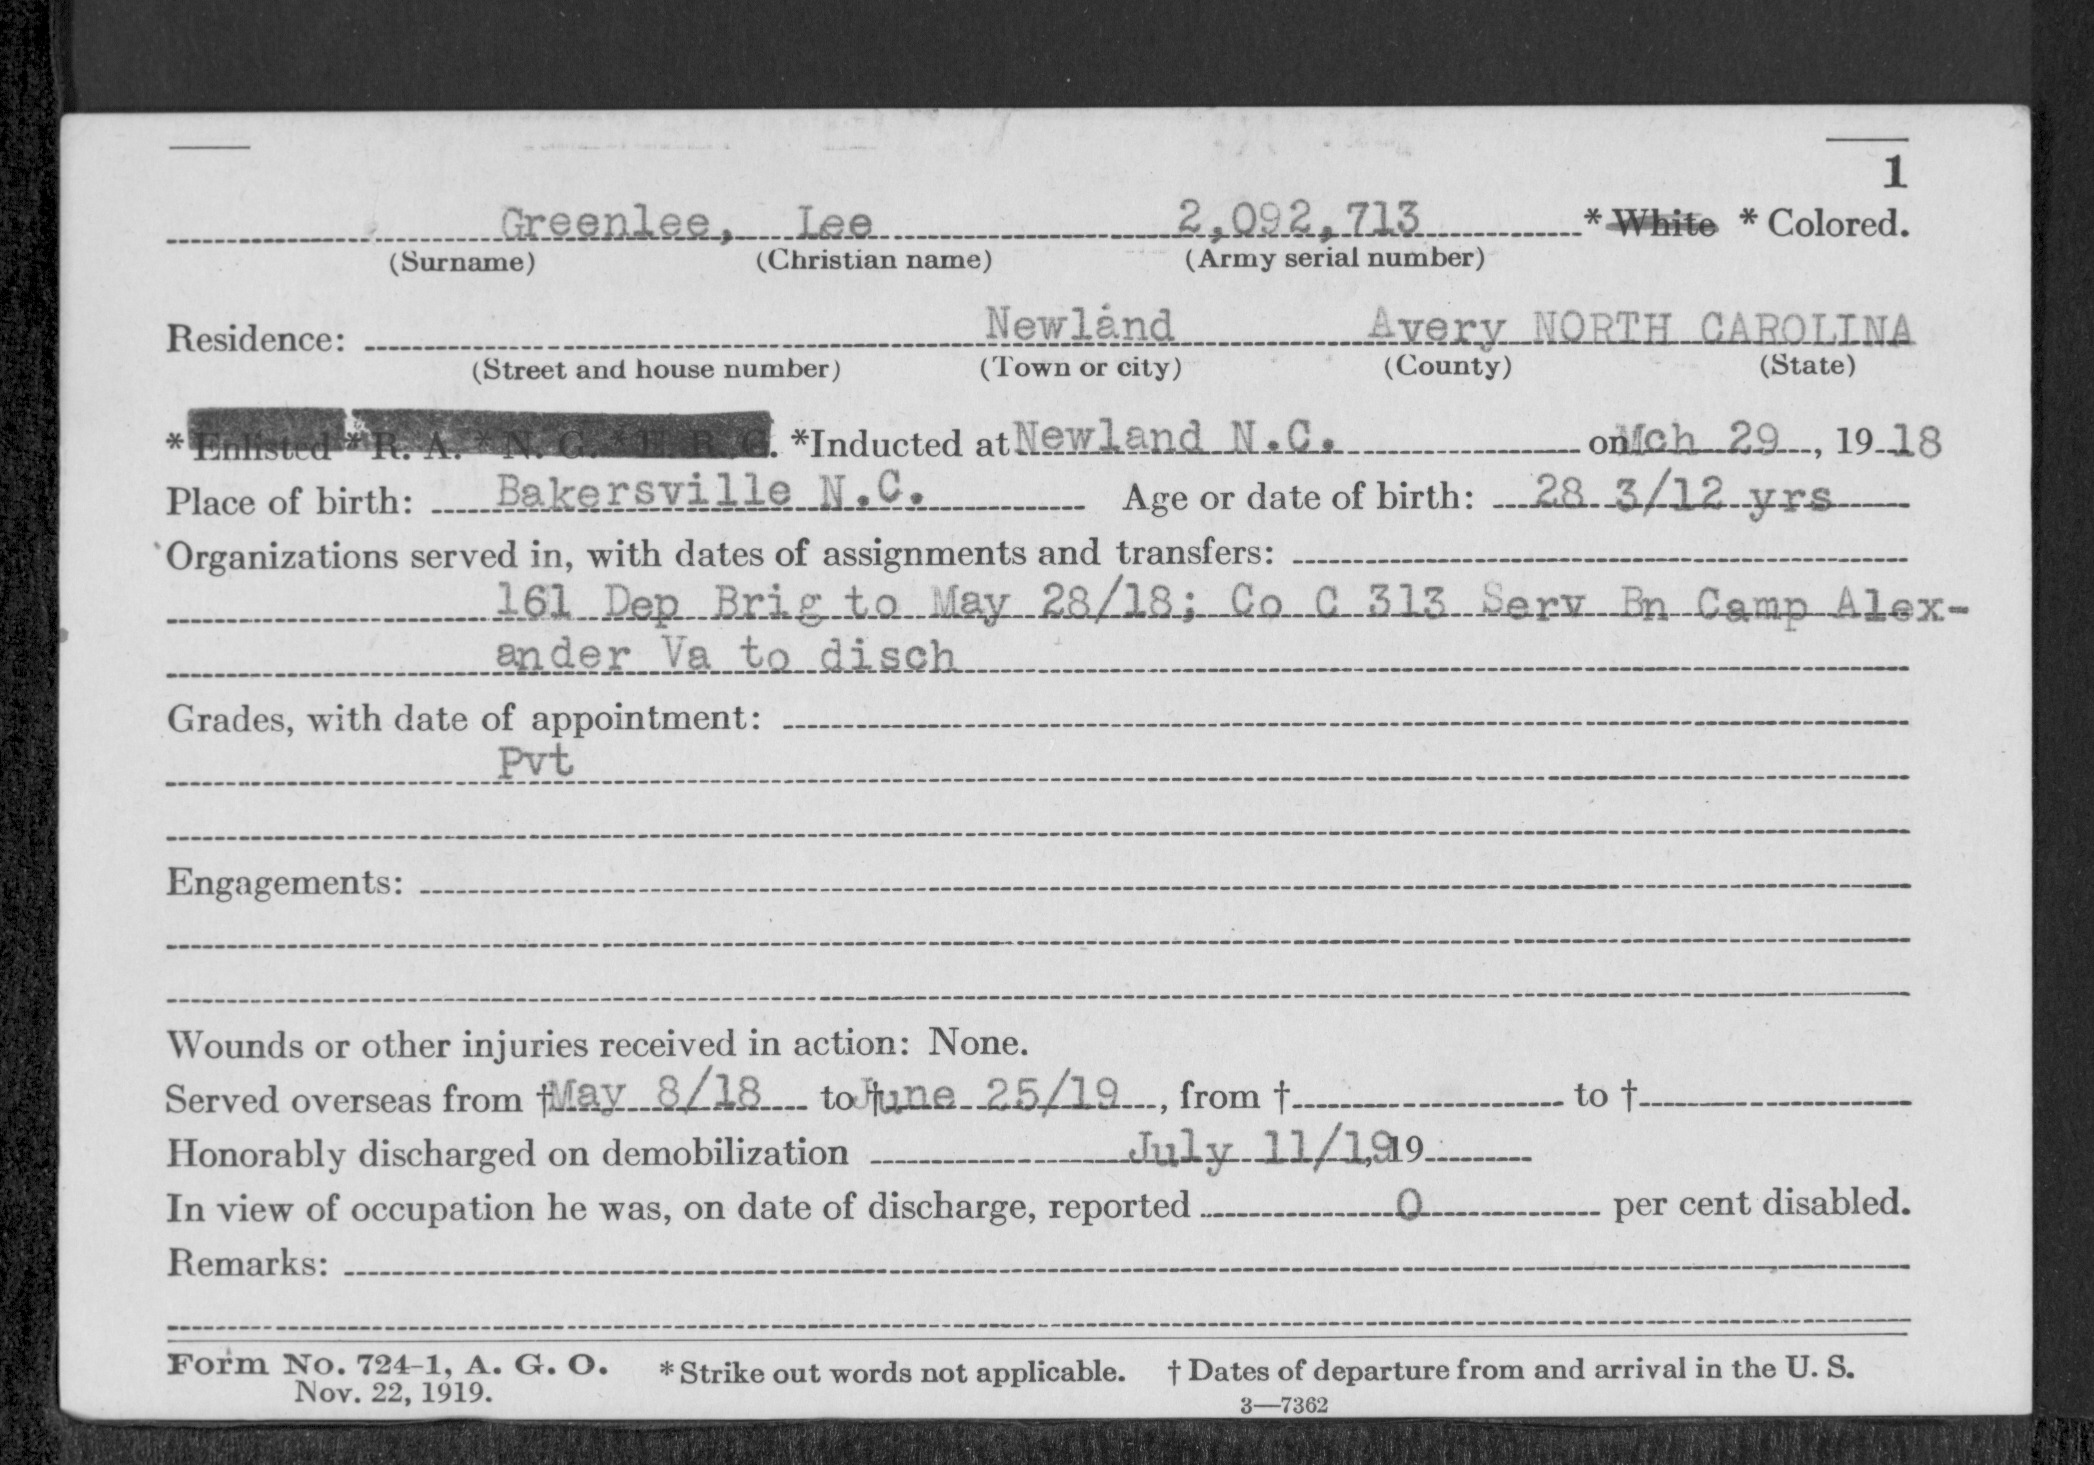 1
Greenlee, Lee 2,092,713 * White * Colored.
(Surname) (Christian name) (Army serial number)
Residence: Newland Avery NORTH CAROLINA
(Street and house number) (Town or city) (County) (State)
* Enlisted * R. A. * N. G. * E. R. C. *Inducted at Newland N.C. on Mch 29, 1918
Place of birth: Bakersville N.C. Age or date of birth: 28 3/12 yrs
Organizations served in, with dates of assignments and transfers:
161 Dep Brig to May 28/18; Co C 313 Serv Bn Camp Alex-
ander Va to disch
Grades, with date of appointment:
Pvt
Engagements:
Wounds or other injuries received in action: None.
Served overseas from † May 8/18 to † June 25/19, from † to †
Honorably discharged on demobilization July 11/19, 19
In view of occupation he was, on date of discharge, reported 0 per cent disabled.
Remarks:
Form No. 724-1, A. G. O. * Strike out words not applicable. † Dates of departure from and arrival in the U. S.
Nov. 22, 1919. 3—7362